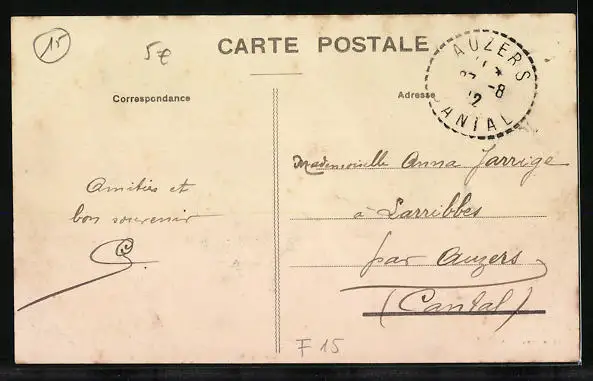 15
5€
CARTE POSTALE
AUZERS
27 -8
12
CANTAL
Correspondance
Adresse
Mademoiselle Anna Jarrige
Amitiés et
bon souvenir
à Larribbes
par Auzers
(Cantal)
F 15